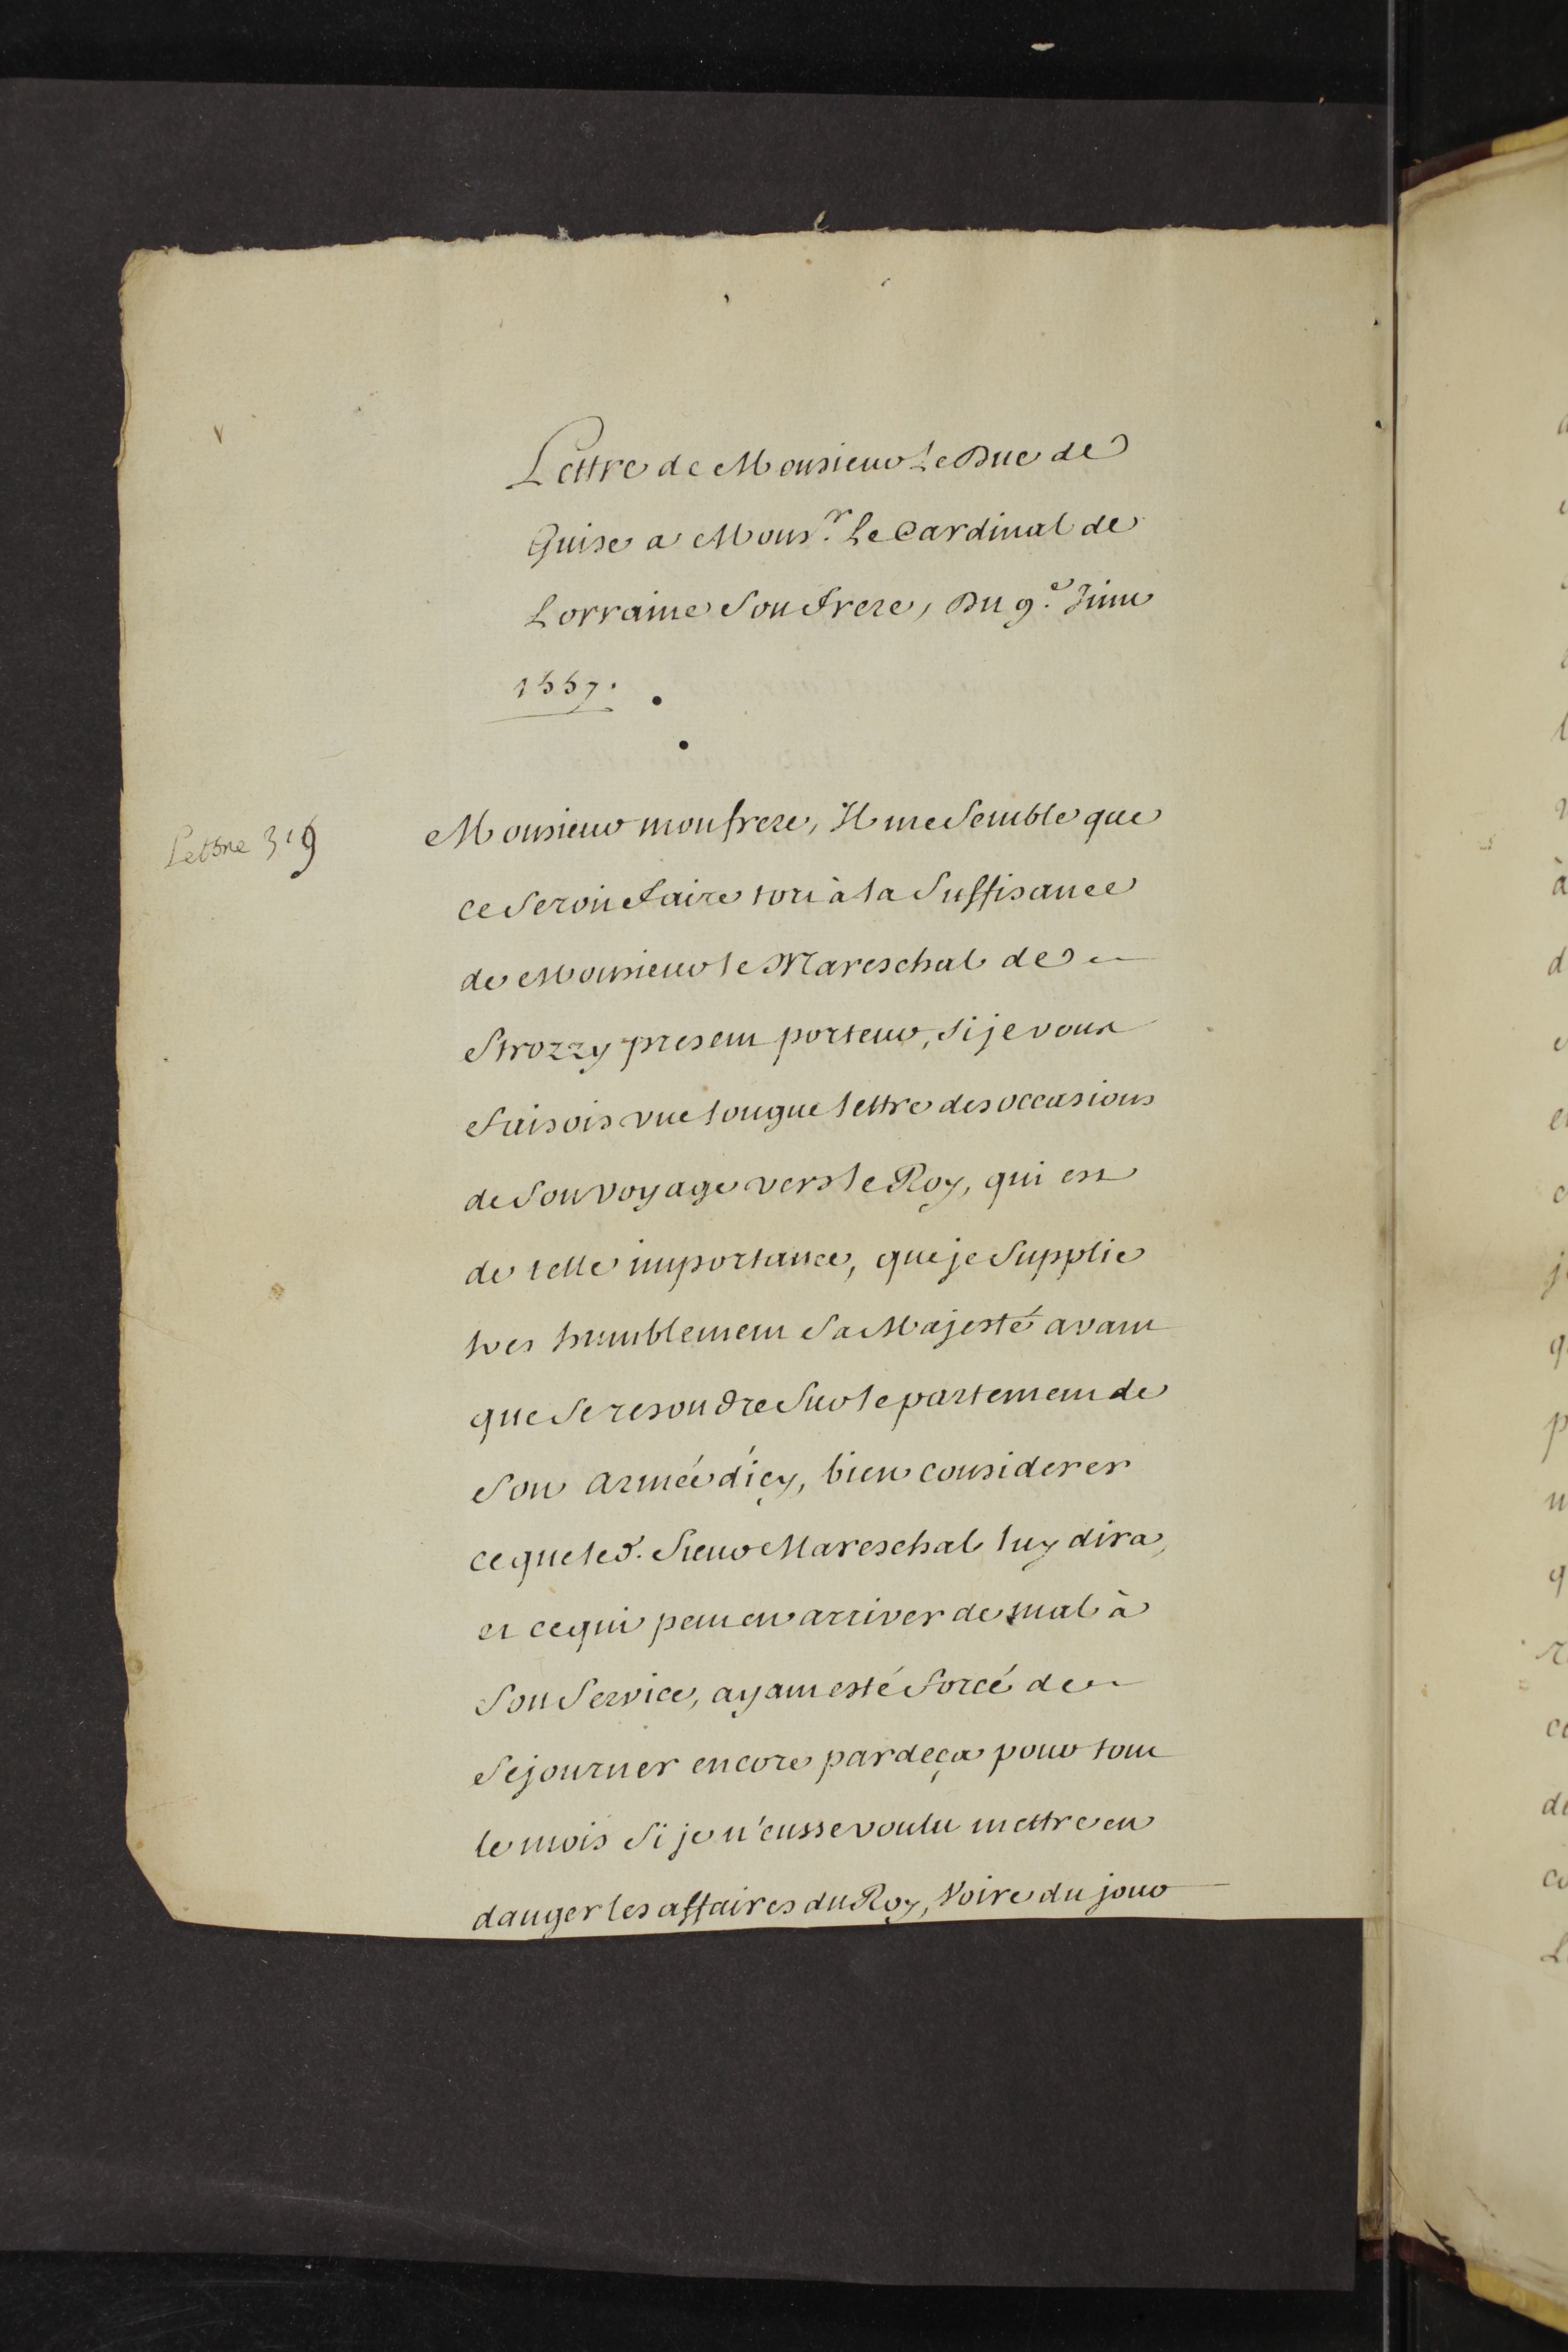 Lettre de Monsieur Le Duc de
Guise a Mons.r Le Cardinal de
Lorraine Son frere, Du 9.e Juin
1557.
Lettre 319
Monsieur mon frere, Il me Semble que
ce Seroit faire tort à la Suffisance
de Monsieur le Mareschal de
Strozzy present porteur, Si je vous
faisois une longue lettre des occasions
de Son voyage vers le Roy, qui est
de telle importance, que je Supplie
tres humblement Sa Majesté avant
que Se resoudre Sur le partement de
Son armée d'icy, bien considerer
ce que led. Sieur Mareschal luy dira,
et ce qui peut en arriver de mal à
Son Service, ayant esté forcé de
Sejourner encore pardeça pour tout
le mois Si je n'eusse voulu mettre en
danger les affaires du Roy, Voire du jour